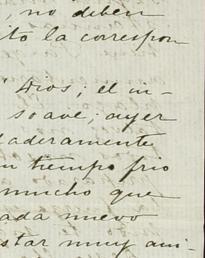 , no deben
ito la correspon
Dios; el in-
soave; ayer
daderamente
un tiempo frio
mucho que
ada nuevo
star muy ani-